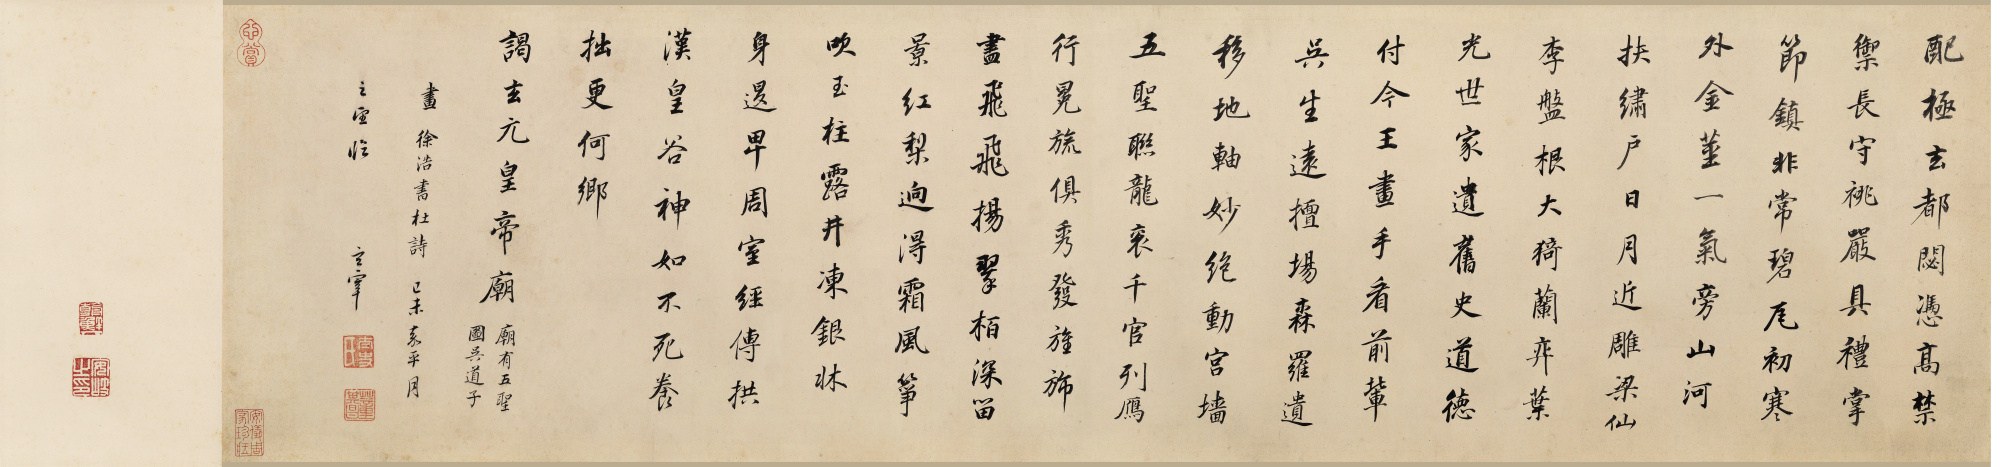 配極玄都閟憑高禁
禦長守祧嚴具禮掌
節鎮非常碧瓦初寒
外金莖一氣旁山河
扶繡戶日月近雕梁仙
李盤根大猗蘭奕葉
光世家遺舊史道德
付今王畫手看前輩
吳生遠擅場森羅遺
移地軸妙絕動宮墻
五聖聯龍袞千官列鴈
行冕旒俱秀發旌旆
盡飛飛揚翠柏深留
景紅梨迥得霜風箏
吹玉柱露井凍銀牀
身退卑周室經傳拱
漢皇谷神如不死養
拙更何鄉
謁玄元皇帝廟 廟有五聖
國吳道子
畫 徐浩書杜詩 己未嘉平月
玄宰臨 玄宰
心賞
安儀周家珍藏